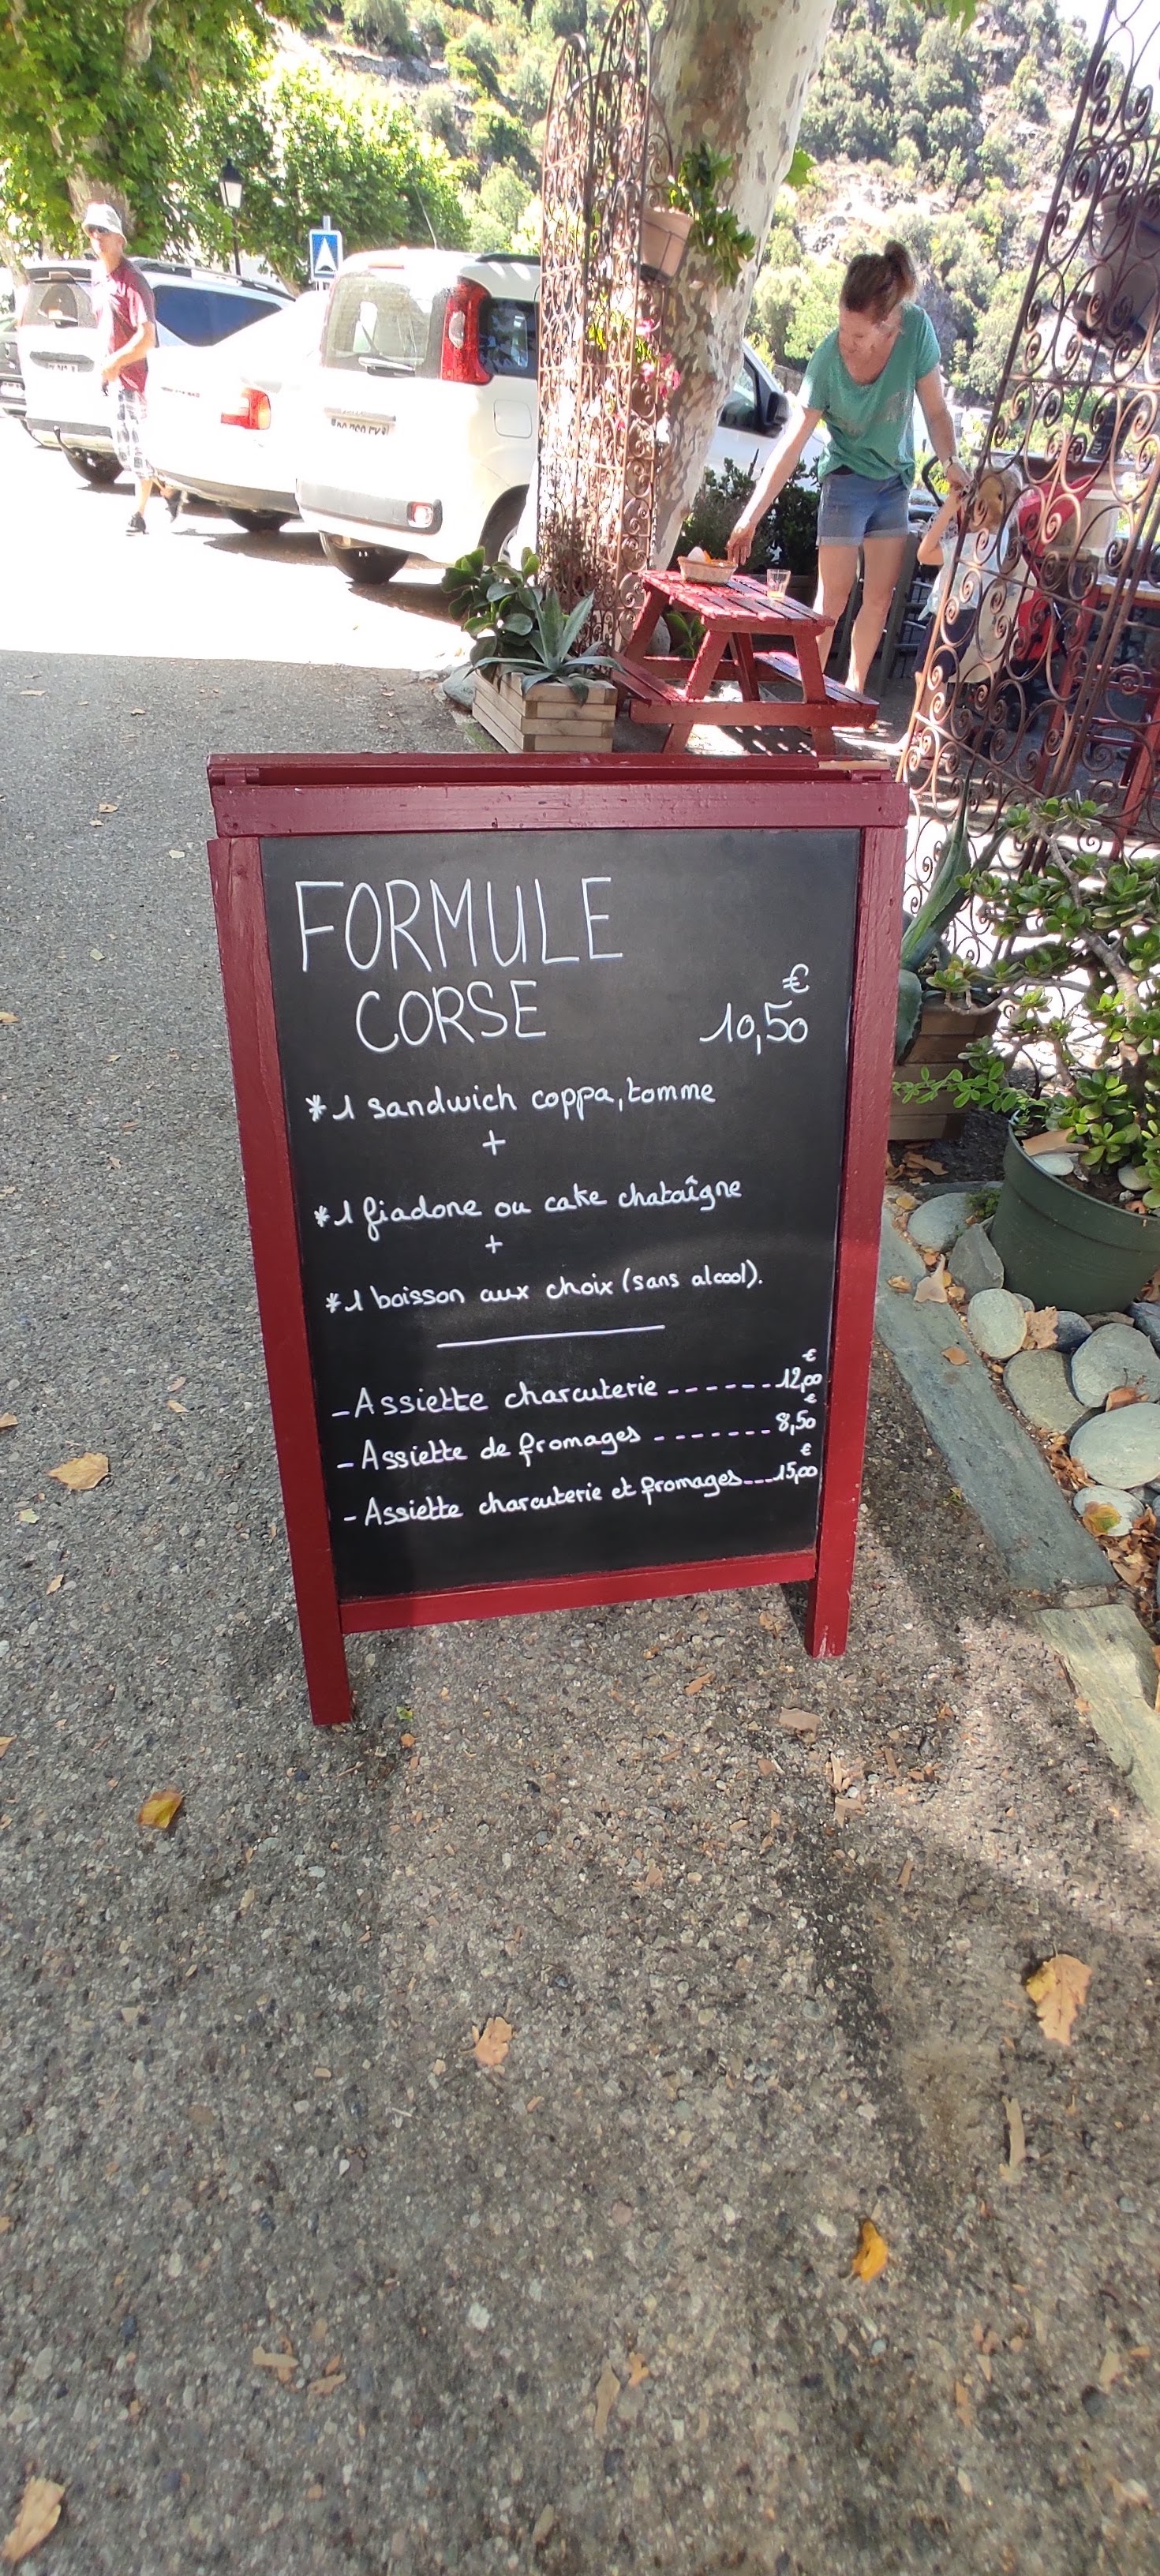 FORMULE
CORSE
€
10,50
*1 sandwich coppa, tomme
+
*1 fiadone ou cake chataîgne
+
*1 boisson aux choix (sans alcool).
€
-Assiette charcuterie ------12,00
€
-Assiette de fromages -------8,50
€
-Assiette charcuterie et fromages----15,00